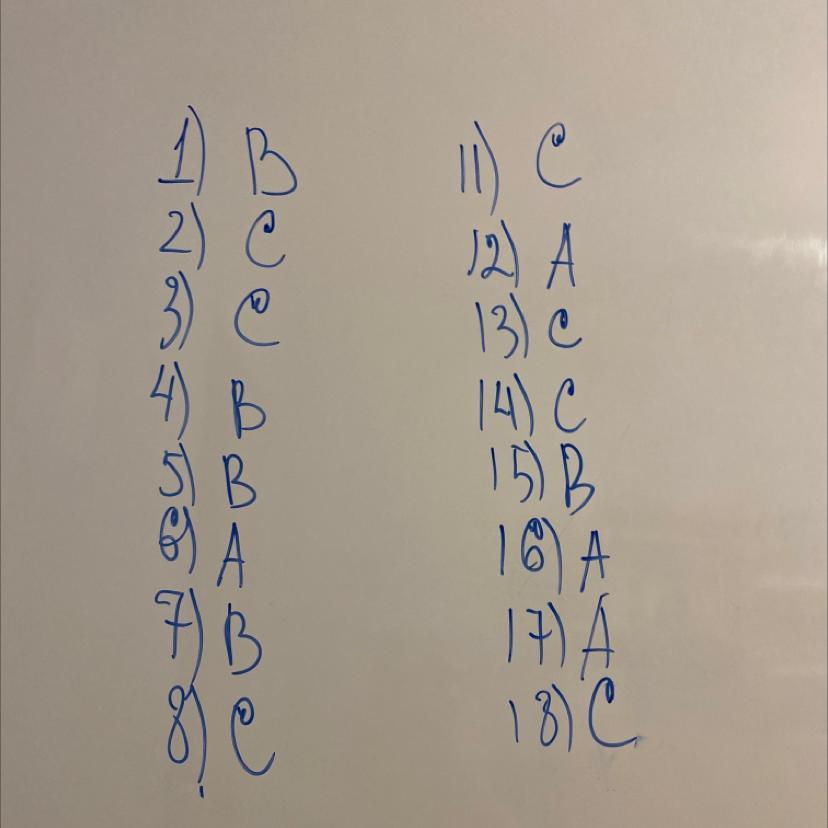 1) B
2) C
3) C
4) B
5) B
6) A
7) B
8) C
11) C
12) A
13) C
14) C
15) B
16) A
17) A
18) C